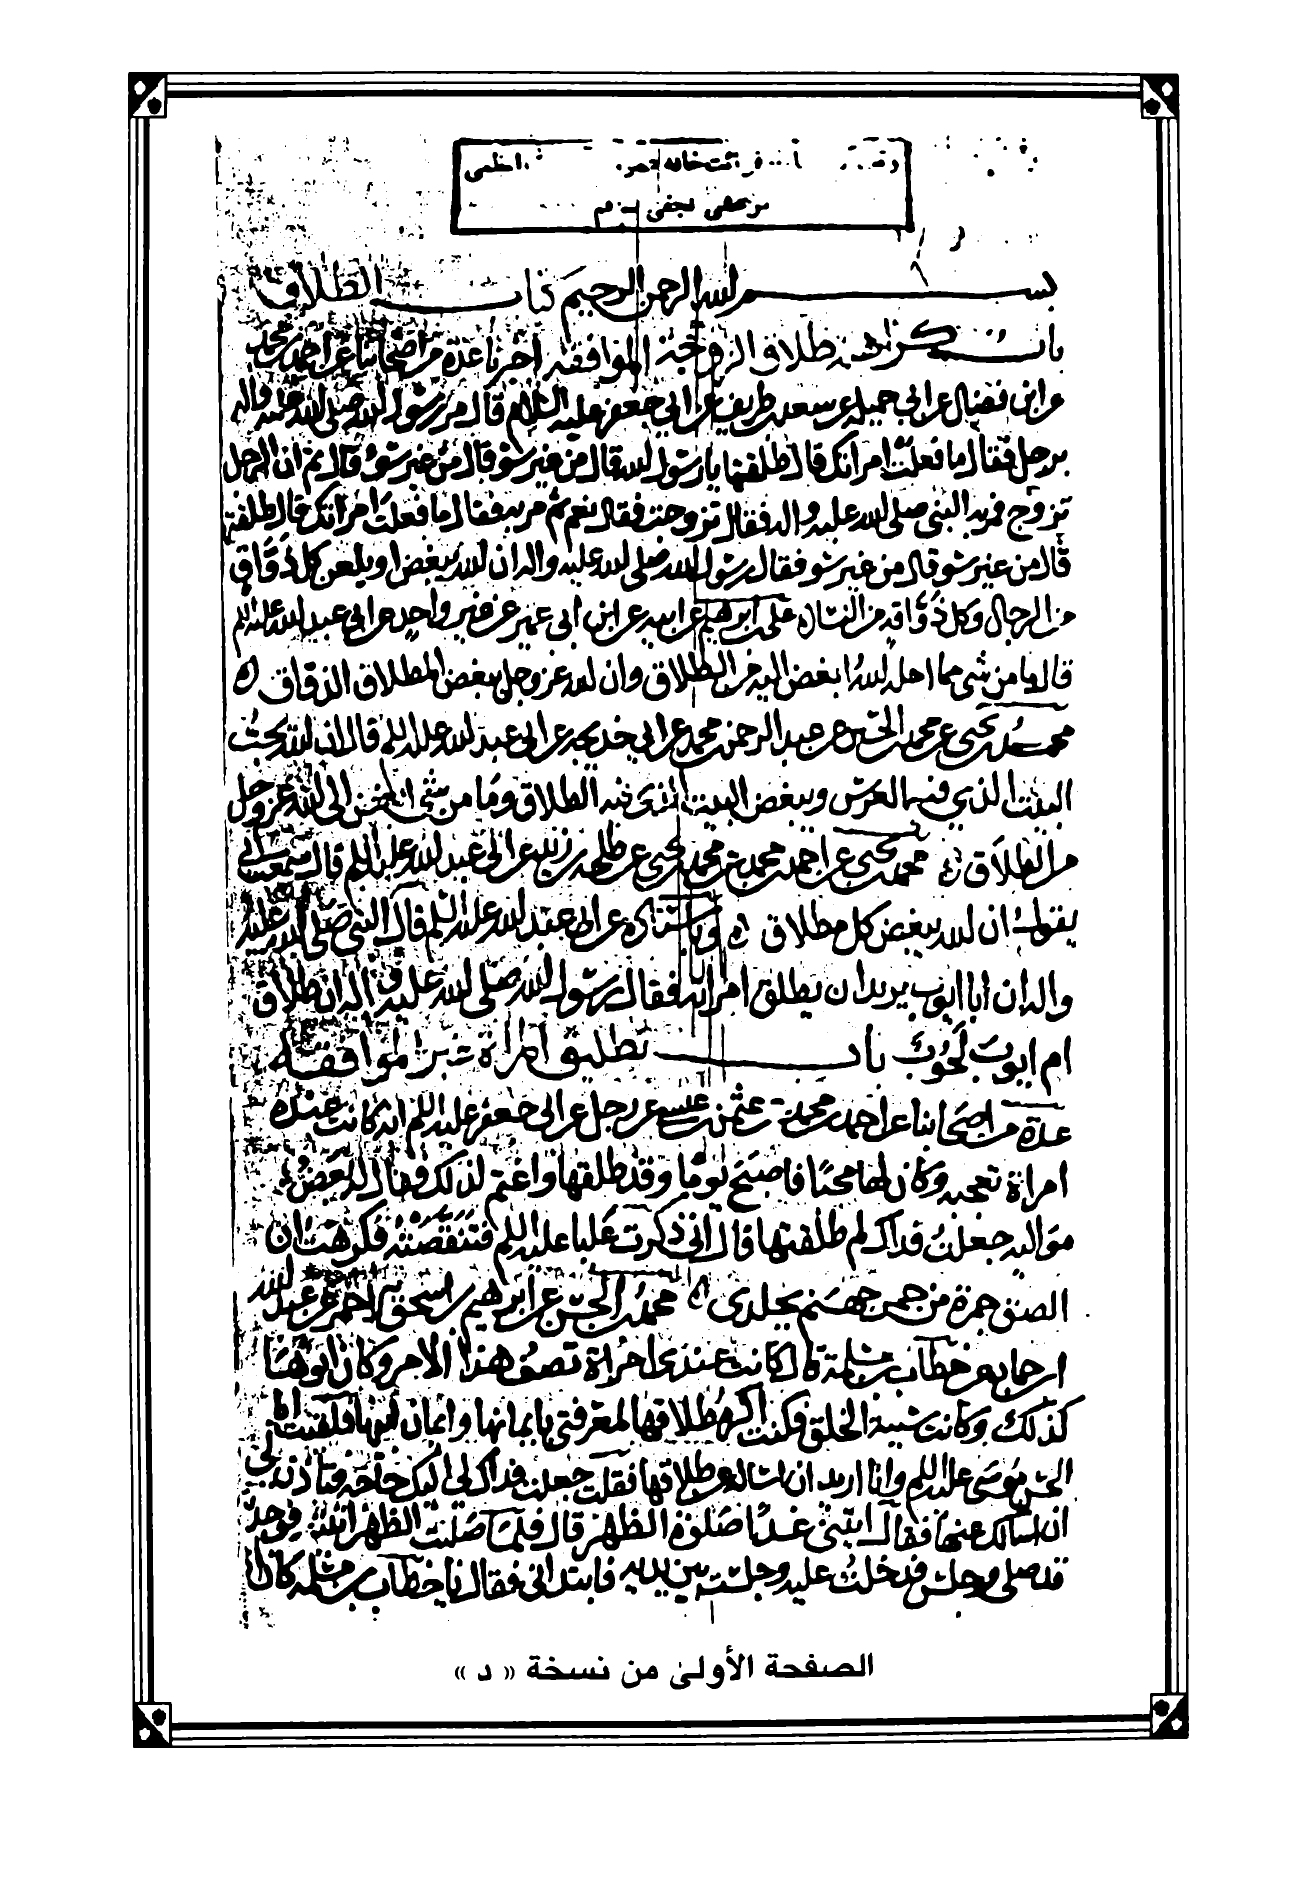 فر ائت خانه
مرعشى نجفى قم
بسم الله الرحمن الرحيم كتاب الطلاق
باب كراهية طلاق الزوجة الموافقة اخبرنا عدة من اصحابنا عن احمد بن محمد
عن ابن فضال عن ابي جميله عن سعد بن طريف عن ابي جعفر عليه السلام قال مر رسول الله صلى الله عليه واله
برجل فقال ما فعلت امراتك قال طلقتها يا رسول الله قال من غير سوء قال من غير سوء قال ثم ان الرجل
تزوج فمر به النبي صلى الله عليه واله فقال تزوجت فقال نعم ثم مر به فقال ما فعلت امراتك قال طلقتها
قال من غير سوء قال من غير سوء فقال رسول الله صلى الله عليه واله ان الله يبغض او يلعن كل ذواق
من الرجال وكل ذواقه من النساء ه على بن ابرهيم عن ابيه عن ابن ابي عمير عن غير واحد عن ابي عبد الله عليه السلم
قال ما من شى مما احله الله ابغض اليه من الطلاق وان الله عز وجل يبغض المطلاق الذواق ه
محمد بن يحيى عن محمد بن الحسين عن عبد الرحمن بن محمد عن ابي خديجه عن ابي عبد الله عليه السلم قال ان الله يحب
البيت الذي فيه العرس ويبغض البيت الذى فيه الطلاق وما من شى ابغض الى الله عز وجل
من الطلاق ه محمد بن يحيى عن احمد بن محمد عن محمد بن يحيى عن طلحه بن زيد عن ابي عبد الله عليه السلم قال سمعت ابي
يقول ان الله يبغض كل مطلاق ه وباسناده عن ابي عبد الله عليه السلم قال النبي صلى الله عليه
واله ان ابا ايوب يريد ان يطلق امراته فقال رسول الله صلى الله عليه واله ان طلاق
ام ايوب لحوب باب تطليق امراة غير الموافقة
عدة من اصحابنا عن احمد بن محمد عن عثمن بن عيسى عن رجل عن ابي جعفر عليه السلم انه كانت عنده
امراة تعجبه وكان لها محبا فاصبح يوما وقد طلقها واغتم لذلك فقال له بعض
مواليه جعلت فداك لم طلقتها قال انى ذكرت عليا عليه السلم فتنقصته فكرهت ان
الصق جمرة من جمر جهنم بجلدى ه محمد بن الحسن عن ابرهيم بن اسحق بن احمر عن عبد الله
بن حماد عن خطاب بن سلمة قال كانت عندى امراة تصف هذا الامر وكان ابوها
كذلك وكانت سيئة الخلق فكنت اكره طلاقها لمعرفتى بايمانها وايمان ابيها فلقيت ابا
الحسن موسى عليه السلم وانا اريد ان اساله عن طلاقها فقلت جعلت فداك ان لى اليك حاجه فتاذن لى
ان اسالك عنها فقال ايتنى غدا صلوة الظهر قال فلما صليت الظهر اتيته فوجدته
قد صلى وجلس فدخلت عليه وجلست بين يديه فابتدانى فقال يا خطاب بن سلمه كان
الصفحة الأولىٰ من نسخة « د »